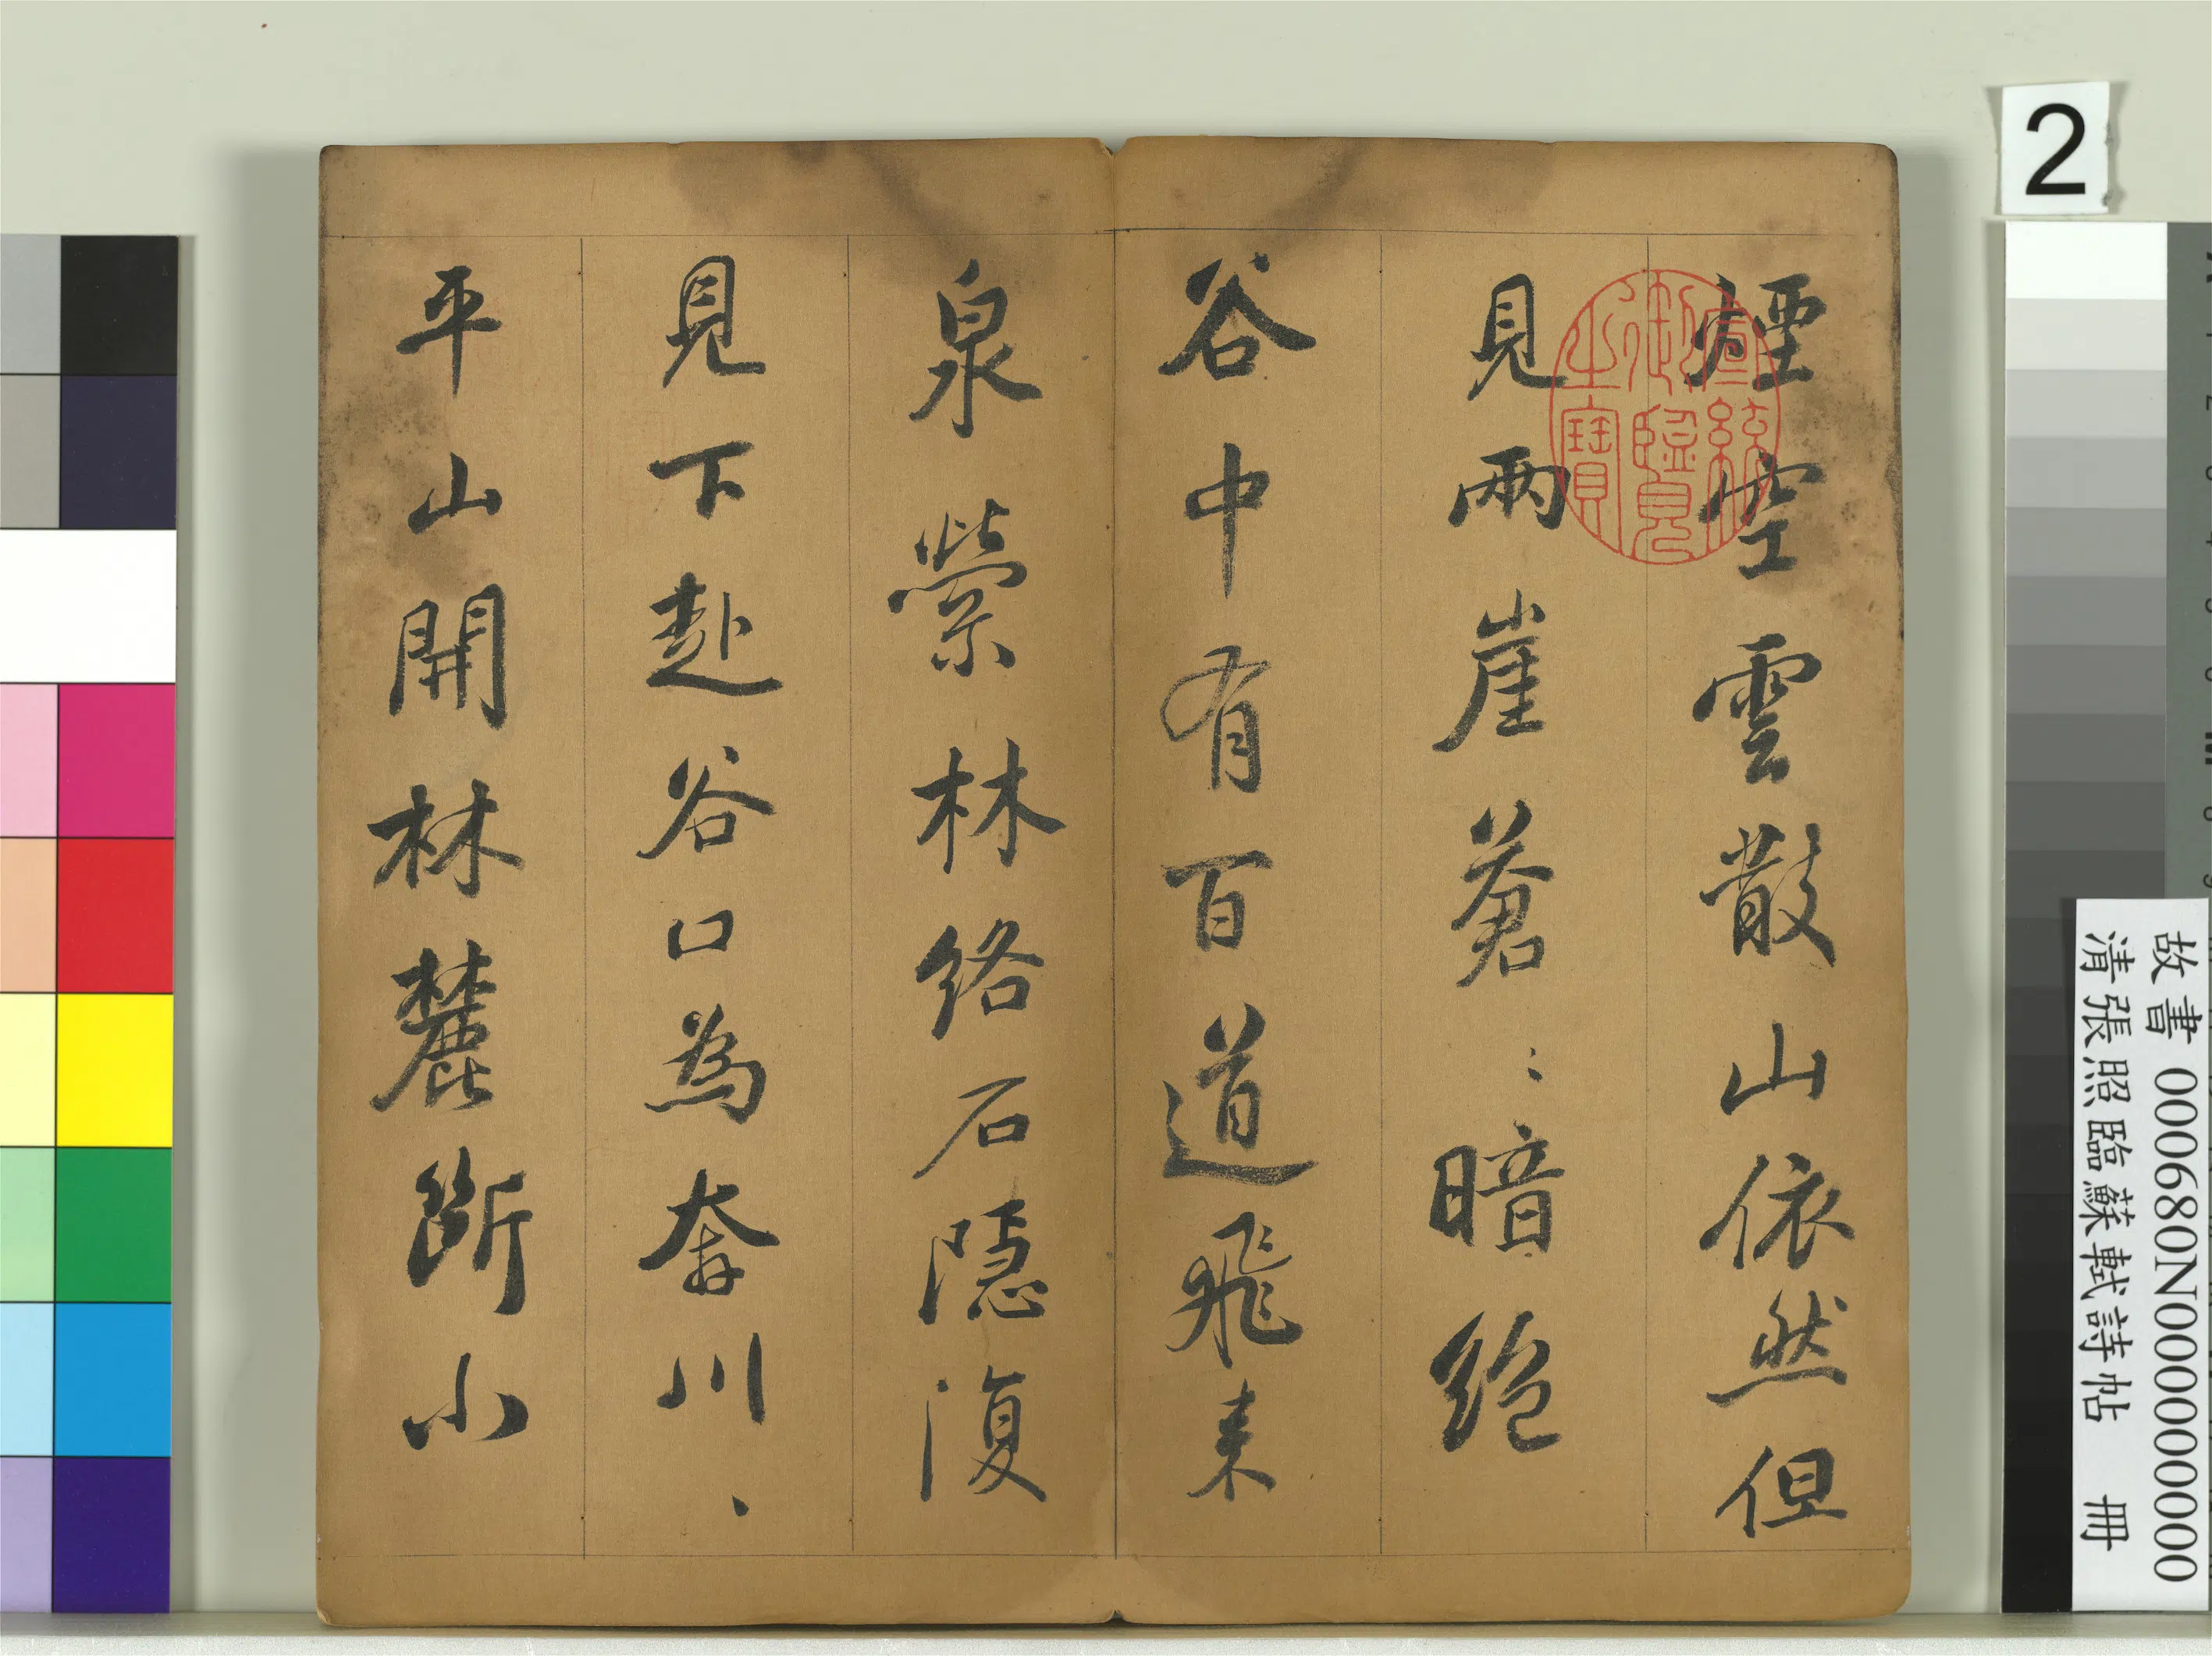 煙空雲散山依然但
見兩崖蒼〻暗絕
谷中有百道飛来
泉縈林絡石隱復
見下赴谷口為奔川、
平山開林麓斷小
宣統
御覽
之寶
2
故書 000680N000000000
清張照臨蘇軾詩帖 冊